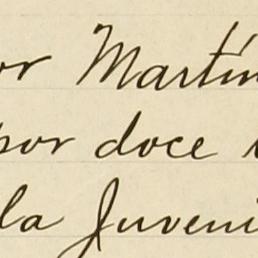 or Martín
por doce
la Juveni